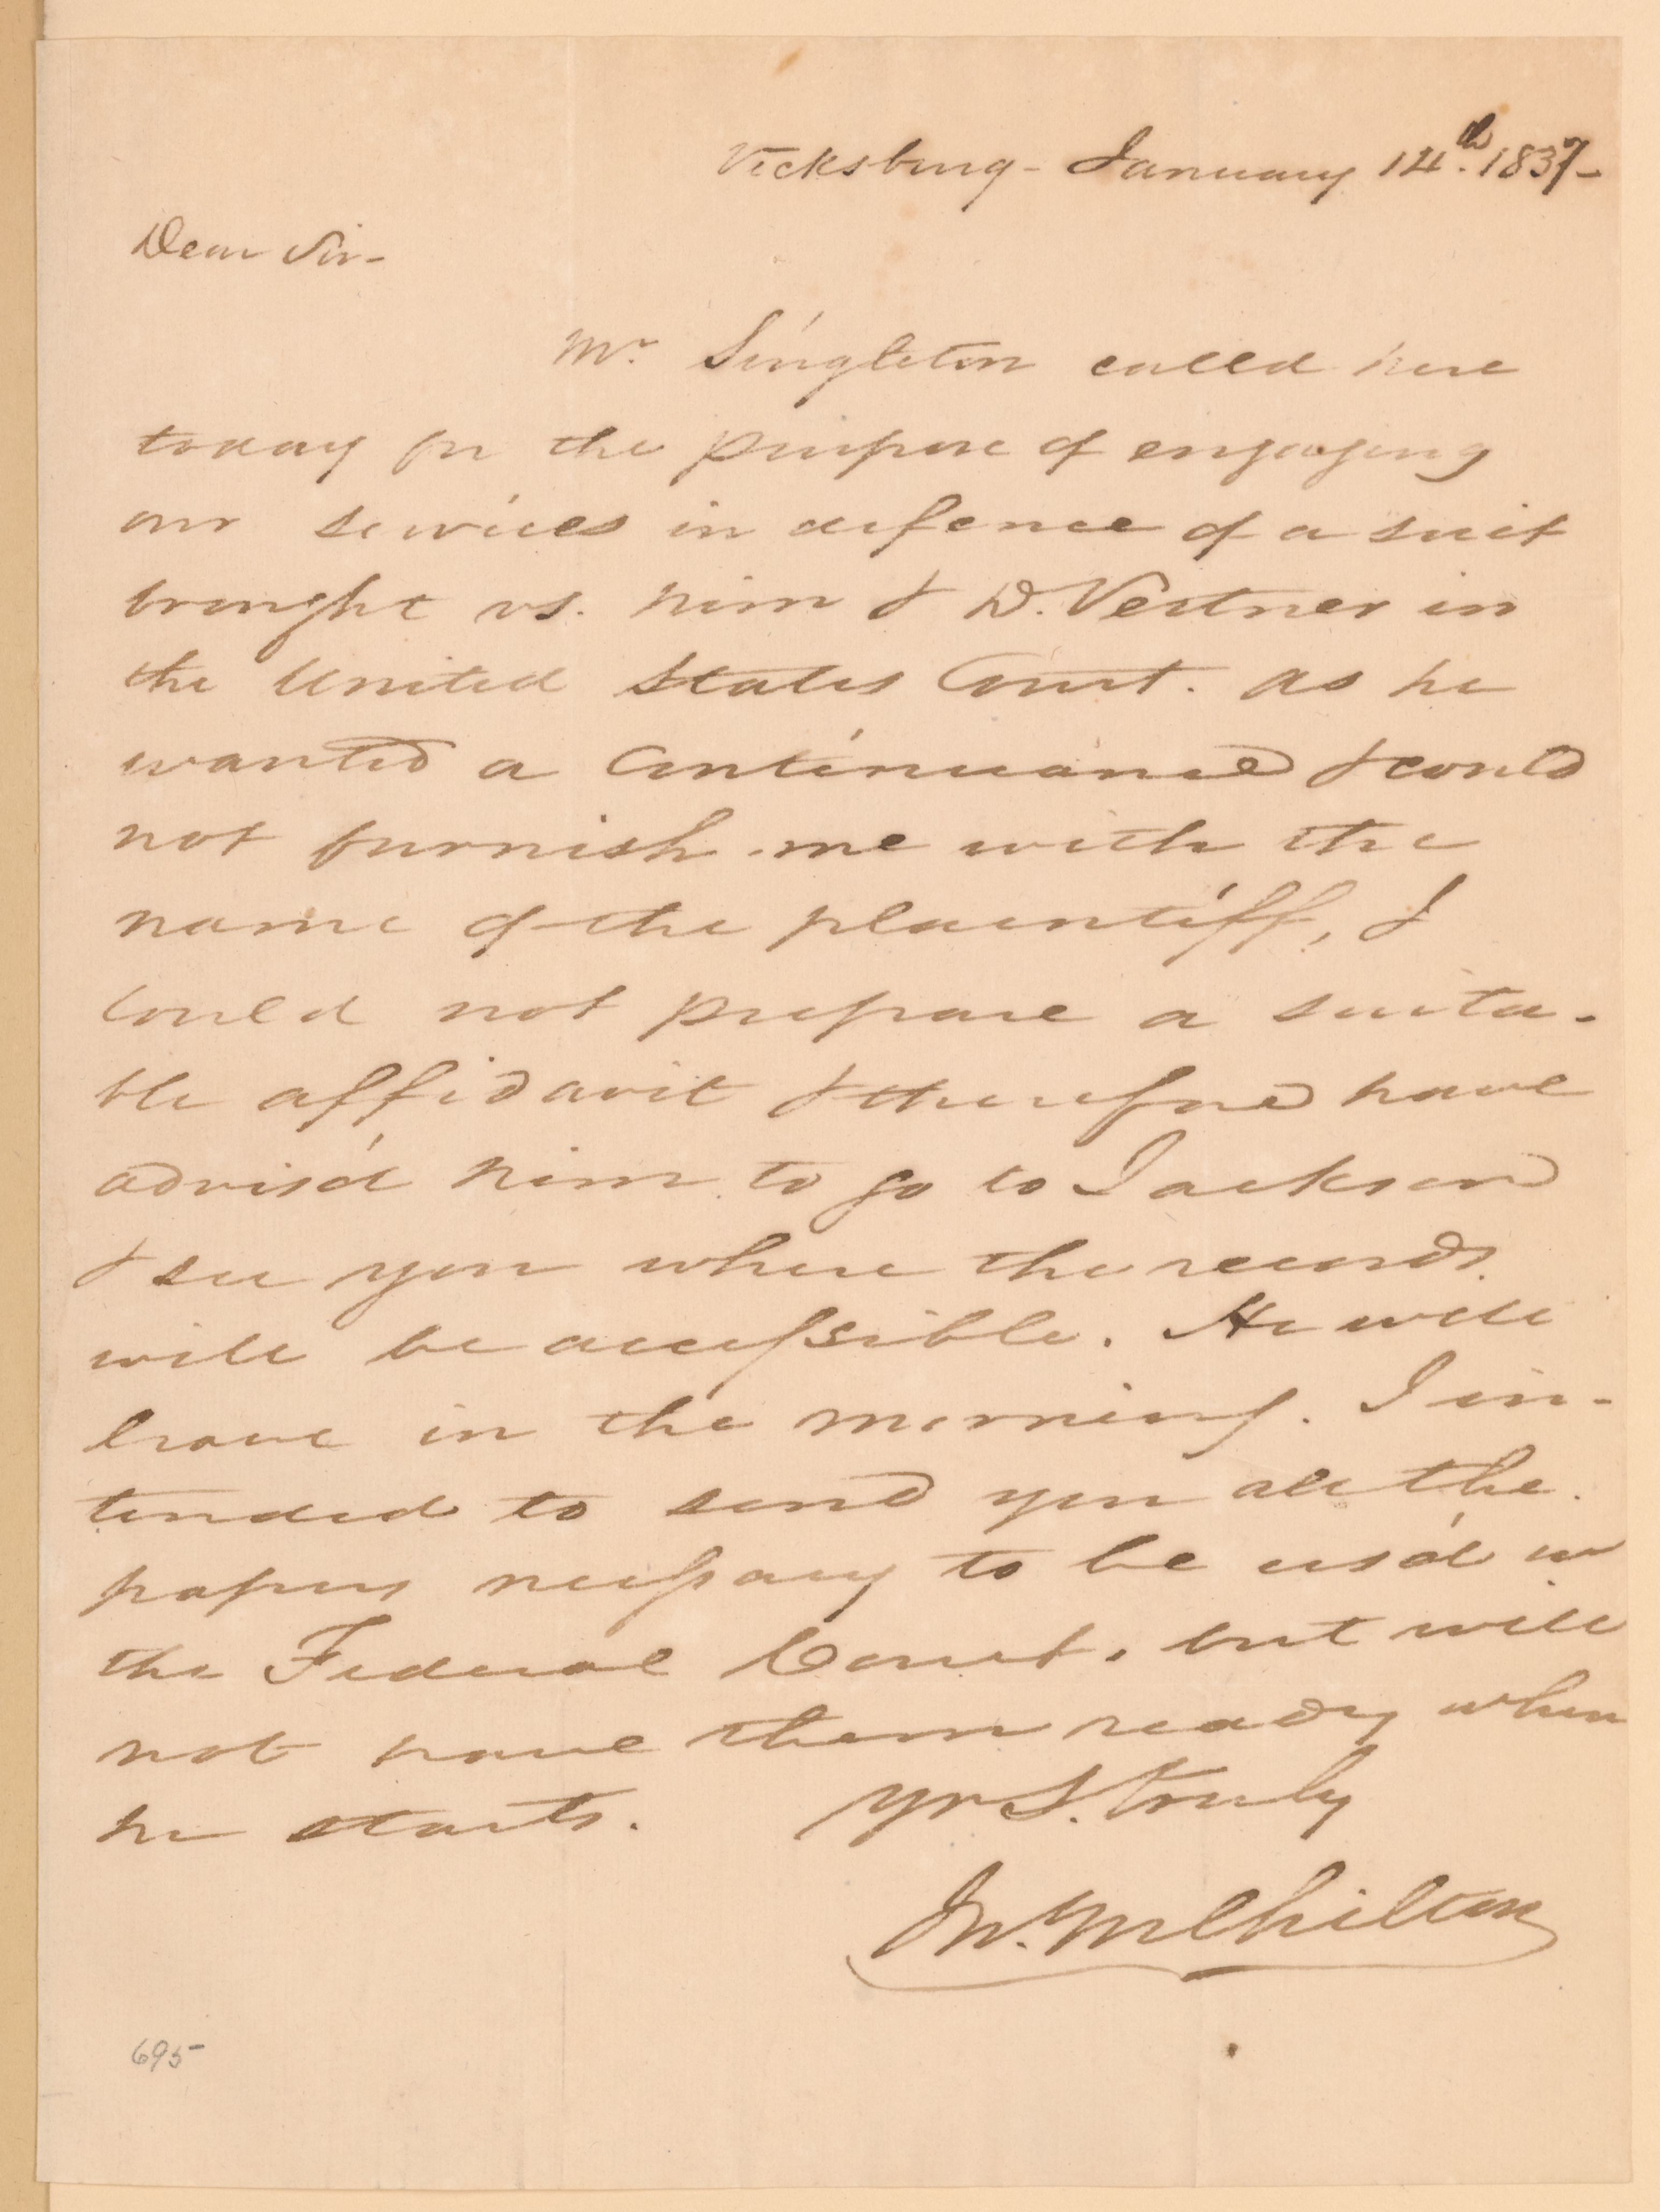 Vicksburg - January 14th. 1837-
Dear Sir-
Mr. Singleton called here
today for the purpose of engaging
our services in defence of a suit
brought vs. him & D. Vertner in
the United States Court. As he
wanted a Continuance & could
not furnish me with the
name of the plaintiff, I
could not prepare a suita-
ble affidavit & therefore have
advis'd him to go to Jackson
& see you where the records
will be accessible. He will
leave in the morning. I in-
tended to send you all the
papers necessary to be us'd in
the Federal Court, but will
not have them ready when
he starts. Yrs. truly
Jn. M Chilton
695